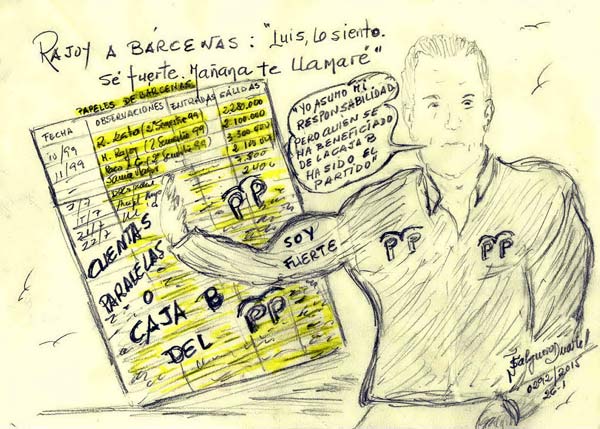 RAJOY A BÁRCENAS: "LUIS, LO SIENTO.
SÉ FUERTE. MAÑANA TE LLAMARÉ"
PAPELES DE BÁRCENAS
FECHA OBSERVACIONES ENTRADAS SALIDAS
10/99 R. (2 Semestre 99) 2.280.000
11/99 M. Rajoy (2 Semestre 99) 2.100.000
2 Semestre 99) 3.300.000
2.100.000
CUENTAS
PARALELAS
O
CAJA B
DEL PP
PP
"YO ASUMO MI
RESPONSABILIDAD,
PERO QUIEN SE
HA BENEFICIADO
DE LA CAJA B
HA SIDO EL
PARTIDO"
SOY
FUERTE
PP
PP
Salguero Duarte
0292/2015
26-1